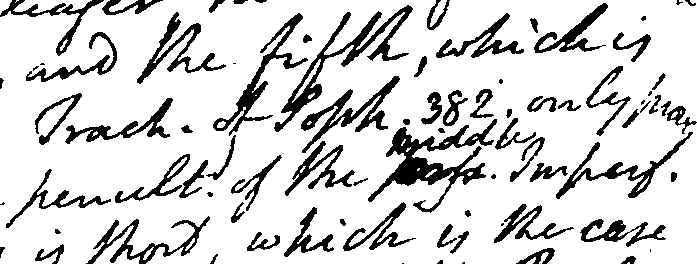 and the fifth, which is
Trach. of Soph. 382. only
middle
penult. of the Imperf.
is short, which is the case